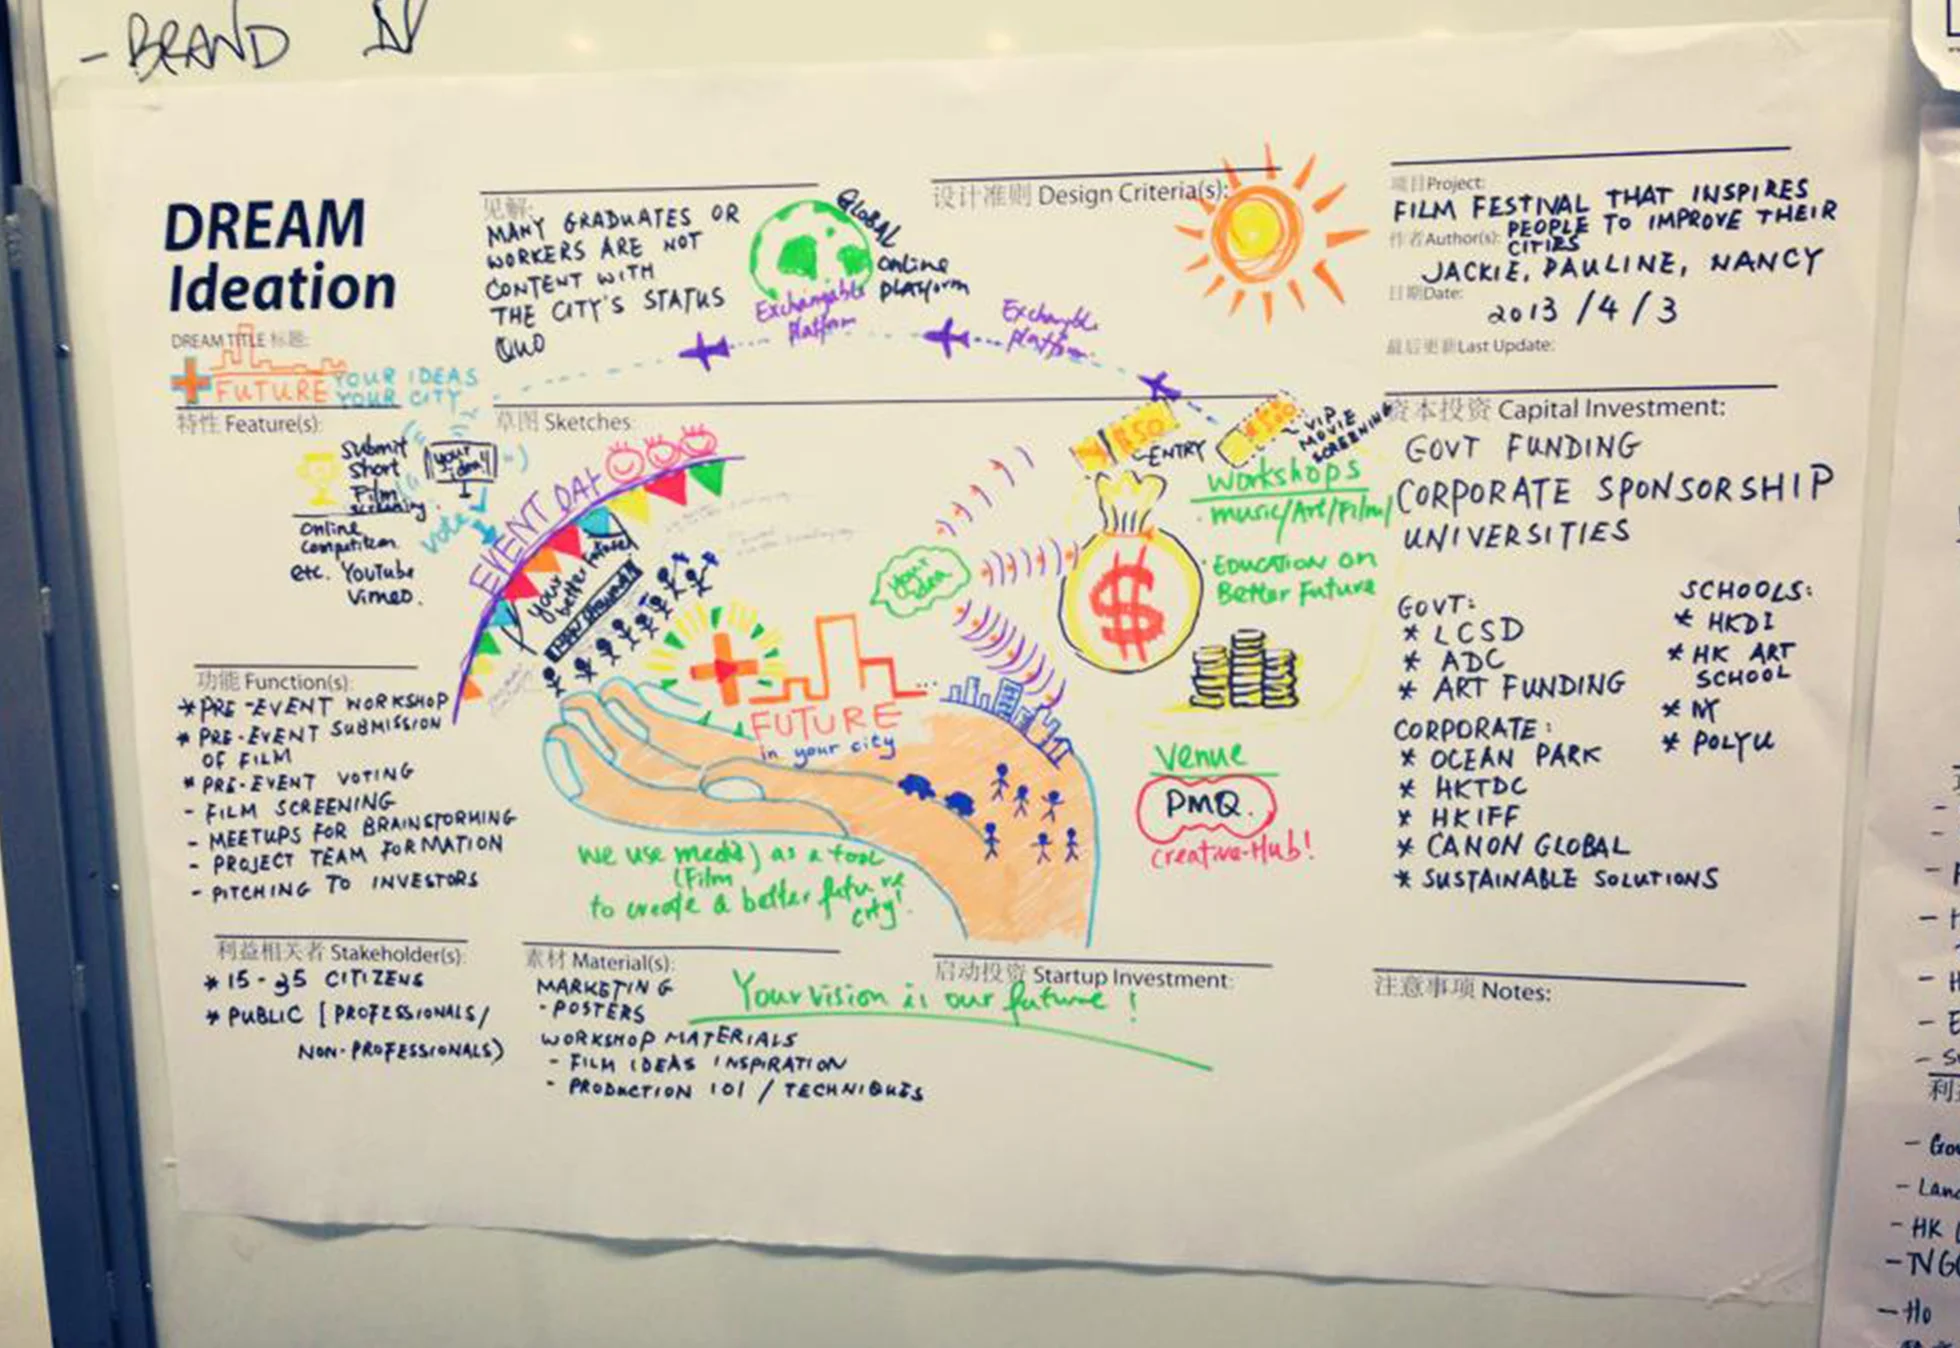 - BRAND
DREAM
Ideation
DREAM TITLE 标题:
+ FUTURE YOUR IDEAS
YOUR CITY
见解:
MANY GRADUATES OR
WORKERS ARE NOT
CONTENT WITH
THE CITY'S STATUS
QUO
GLOBAL
Online
Platform
Exchangable
Platform
Exchangable
Platform
设计准则 Design Criteria(s):
项目Project:
FILM FESTIVAL THAT INSPIRES
PEOPLE TO IMPROVE THEIR
CITIES
作者Author(s):
JACKIE, PAULINE, NANCY
日期Date:
2013 / 4 / 3
最后更新Last Update:
特性 Feature(s):
Submit
Short
Film
screening.
your
idea!
vote
Online
Competition
etc. YouTube
Vimeo.
草图 Sketches:
EVENT DAY
your
better future!
$50
ENTRY
$50
VIP
MOVIE
SCREENING
Workshops
music/Art/Film/
EDUCATION ON
Better Future
your
idea
$
+
FUTURE
in your city
Venue
PMQ.
creative-Hub!
We use media) as a tool
(Film
to create a better future
city!
资本投资 Capital Investment:
GOVT FUNDING
CORPORATE SPONSORSHIP
UNIVERSITIES
GOVT:
* LCSD
* ADC
* ART FUNDING
CORPORATE:
* OCEAN PARK
* HKTDC
* HKIFF
* CANON GLOBAL
* SUSTAINABLE SOLUTIONS
SCHOOLS:
* HKDI
* HK ART
SCHOOL
* POLYU
功能 Function(s):
* PRE-EVENT WORKSHOP
* PRE-EVENT SUBMISSION
OF FILM
* PRE-EVENT VOTING
- FILM SCREENING
- MEETUPS FOR BRAINSTORMING
- PROJECT TEAM FORMATION
- PITCHING TO INVESTORS
利益相关者 Stakeholder(s):
* 15-35 CITIZENS
* PUBLIC [PROFESSIONALS/
NON-PROFESSIONALS)
素材 Material(s):
MARKETING
- POSTERS
WORKSHOP MATERIALS
- FILM IDEAS INSPIRATION
- PRODUCTION 101 / TECHNIQUES
启动投资 Startup Investment:
Your vision is our future !
注意事项 Notes:
- HK